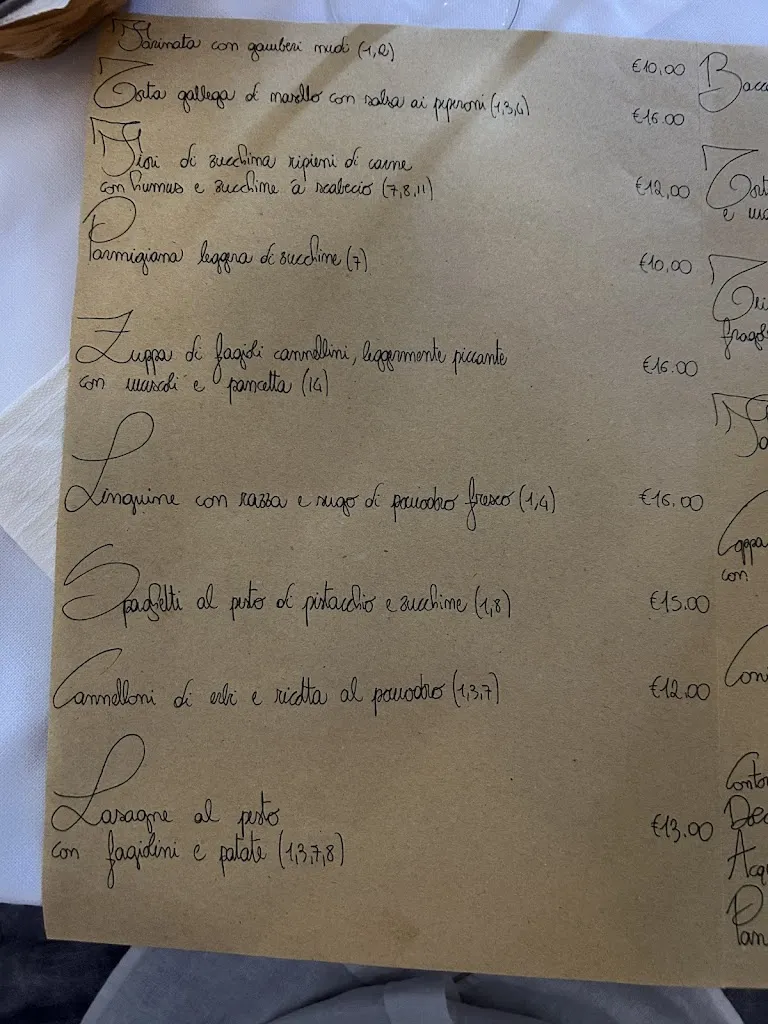 Farinata con gamberi nudi (1,2)
€10,00
Torta gallega di merluzzo con salsa ai peperoni (1,3,4)
€16.00
Fiori di zucchina ripieni di carne
con humus e zucchine a scabecio (7,8,11)
€12,00
Parmigiana leggera di zucchine (7)
€10,00
Zuppa di fagioli cannellini, leggermente piccante
con muscoli e pancetta (14)
€16.00
Linguine con razza e sugo di pomodoro fresco (1,4)
€16.00
Spaghetti al pesto di pistacchio e zucchine (1,8)
€15.00
Cannelloni di erbe e ricotta al pomodoro (1,3,7)
€12.00
Lasagne al pesto
con fagiolini e patate (1,3,7,8)
€13.00
Bacca
Tort
e
fragol
Coppa
con
Coni
Contor
Acqu
Pan